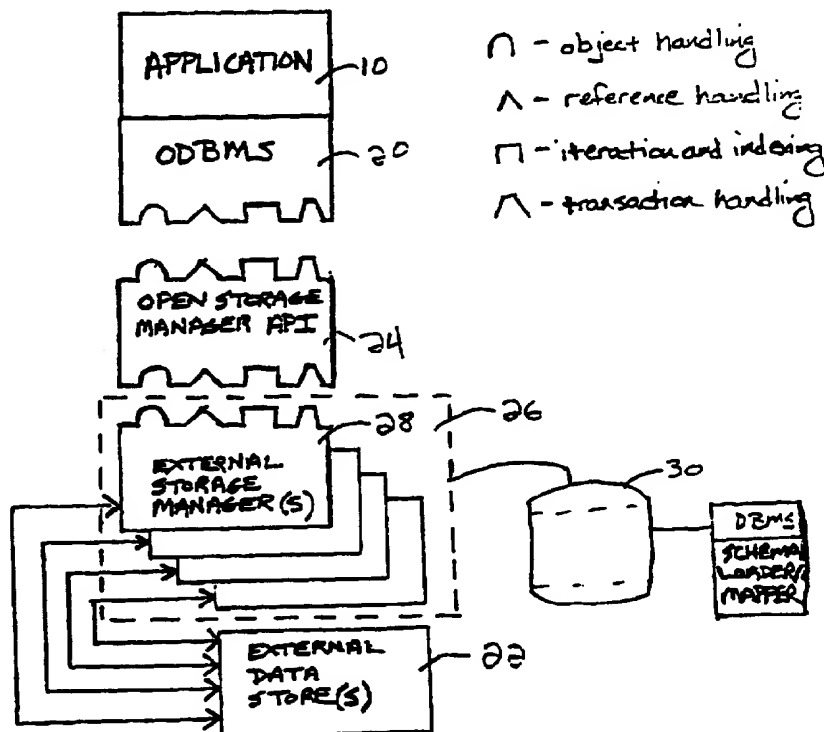 APPLICATION
10
ODBMS
20
∩ - object handling
∧ - reference handling
⊓ - iteration and indexing
/\ - transaction handling
OPEN STORAGE
MANAGER API
24
26
28
EXTERNAL
STORAGE
MANAGER(S)
30
DBMS
SCHEMA
LOADER/
MAPPER
EXTERNAL
DATA
STORE(S)
22